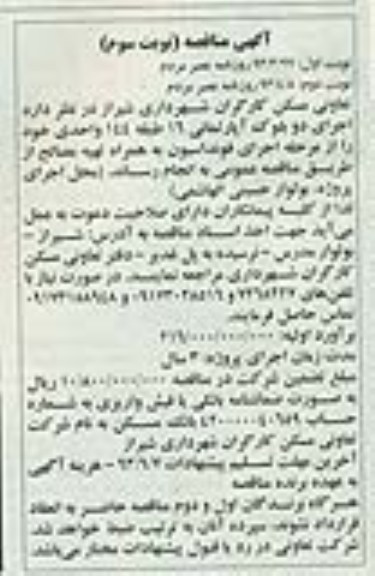 آگهی مناقصه (نوبت سوم)
نوبت اول: روزنامه عصر مردم
نوبت دوم: روزنامه عصر مردم
تعاونی مسکن کارگران شهرداری شیراز در نظر دارد
اجرای دو بلوک آپارتمانی ۱۶ طبقه ۱۴۴ واحدی خود
را از مرحله اجرای فونداسیون به همراه تهیه مصالح از
طریق مناقصه عمومی به انجام رساند. (محل اجرای
پروژه: بولوار حسنی الهاشمی)
لذا از کلیه پیمانکاران دارای صلاحیت دعوت به عمل
می‌آید جهت اخذ اسناد مناقصه به آدرس: شیراز -
بولوار مدرس - نرسیده به پل غدیر - دفتر تعاونی مسکن
کارگران شهرداری مراجعه نمایند. در صورت نیاز با
تلفن‌های و و
تماس حاصل فرمایند.
برآورد اولیه:
مدت زمان اجرای پروژه: ۳ سال
مبلغ تضمین شرکت در مناقصه ۱۰/۸۰۰/۰۰۰/۰۰۰ ریال
به صورت ضمانتنامه بانکی یا فیش واریزی به شماره
حساب بانک مسکن به نام شرکت
تعاونی مسکن کارگران شهرداری شیراز
آخرین مهلت تسلیم پیشنهادات - هزینه آگهی
به عهده برنده مناقصه
هرگاه برندگان اول و دوم مناقصه حاضر به انعقاد
قرارداد نشوند، سپرده آنان به ترتیب ضبط خواهد شد.
شرکت تعاونی در رد یا قبول پیشنهادات مختار می‌باشد.